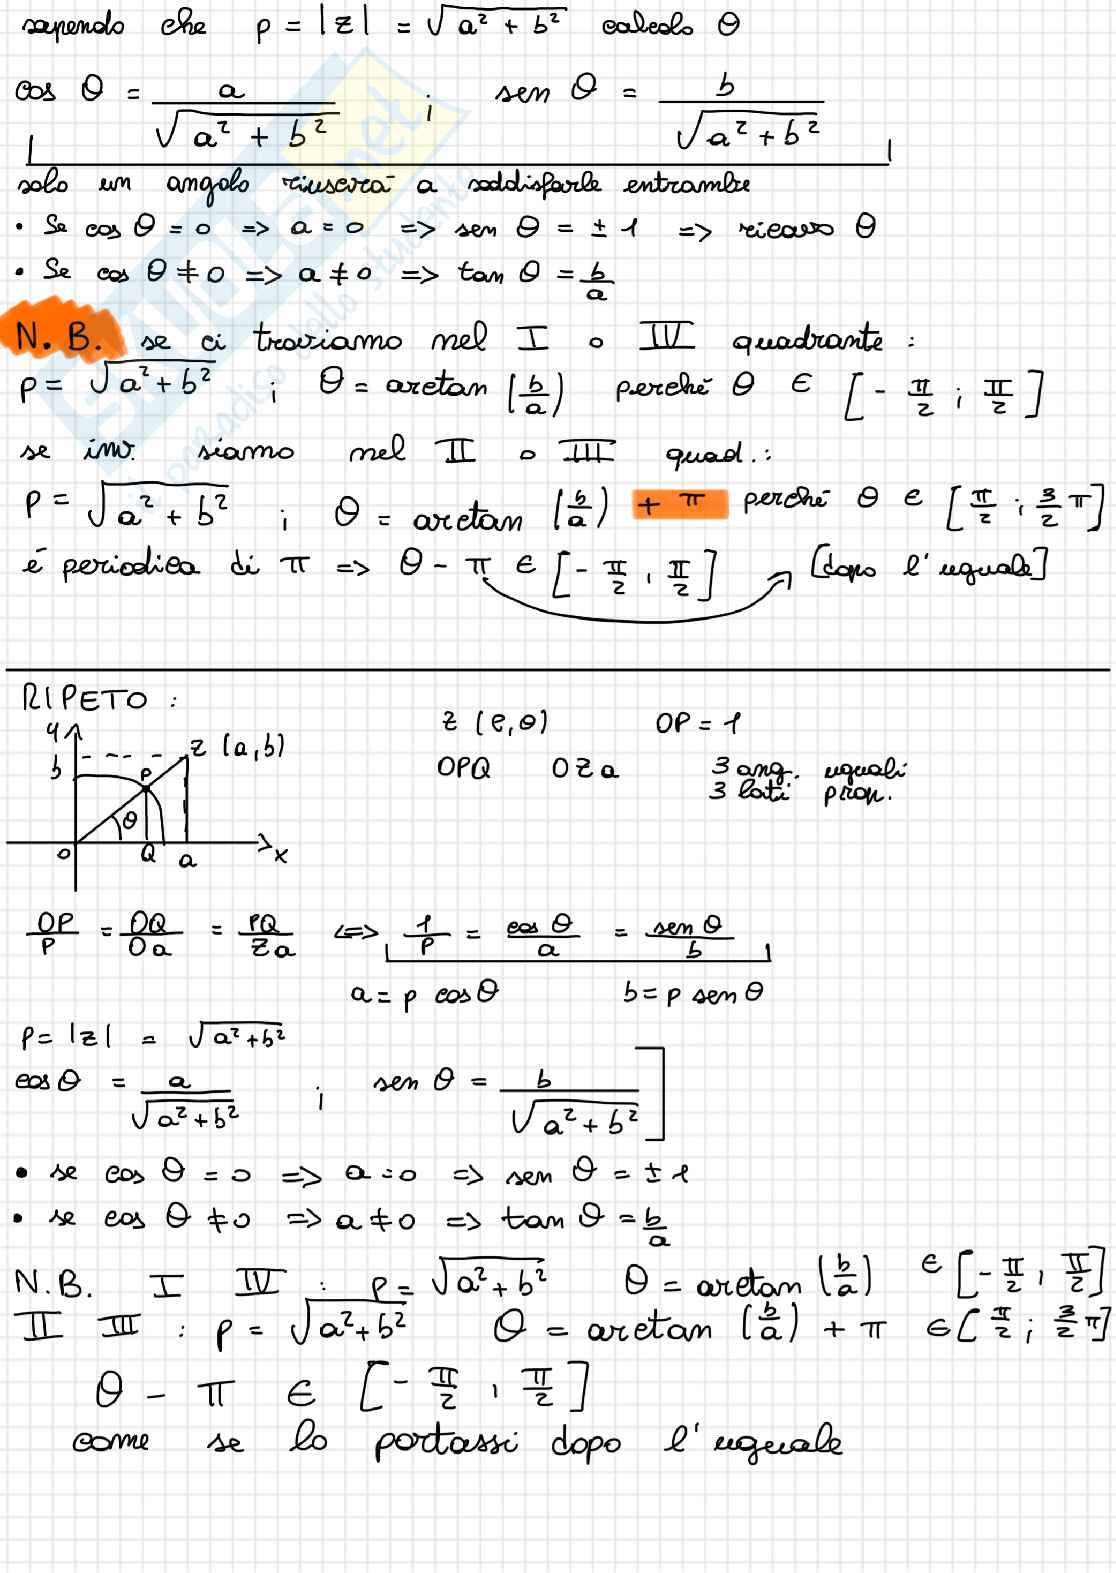 sapendo che ρ = |z| = √(a² + b²) calcolo θ
cos θ = a/√(a² + b²) ; sen θ = b/√(a² + b²)
solo un angolo riuscerà a soddisfarle entrambe
• Se cos θ = 0 => a = 0 => sen θ = ± 1 => ricavo θ
• Se cos θ ≠ 0 => a ≠ 0 => tan θ = b/a
N.B. se ci troviamo nel I o IV quadrante :
ρ = √(a² + b²) ; θ = arctan (b/a) perché θ ∈ [- π/2 ; π/2]
se inv. siamo nel II o III quad. :
ρ = √(a² + b²) ; θ = arctan (b/a) + π perché θ ∈ [π/2 ; 3/2 π]
é periodica di π => θ - π ∈ [- π/2 , π/2] [dopo l'uguale]
RIPETO :
y z (a,b) z (ρ,θ) OP = 1
b P OPQ OZa 3 ang. uguali
3 lati prop.
θ
O Q a x
OP/ρ = OQ/Oa = PQ/Za <=> 1/ρ = cos θ/a = sen θ/b
a = ρ cos θ b = ρ sen θ
ρ = |z| = √(a² + b²)
cos θ = a/√(a² + b²) ; sen θ = b/√(a² + b²)
• se cos θ = 0 => a = 0 => sen θ = ± 1
• se cos θ ≠ 0 => a ≠ 0 => tan θ = b/a
N.B. I IV : ρ = √(a² + b²) θ = arctan (b/a) ∈ [- π/2 , π/2]
II III : ρ = √(a² + b²) θ = arctan (b/a) + π ∈ [π/2 ; 3/2 π]
θ - π ∈ [- π/2 , π/2]
come se lo portassi dopo l'uguale
SKUOLA.net
il paradiso dello studente